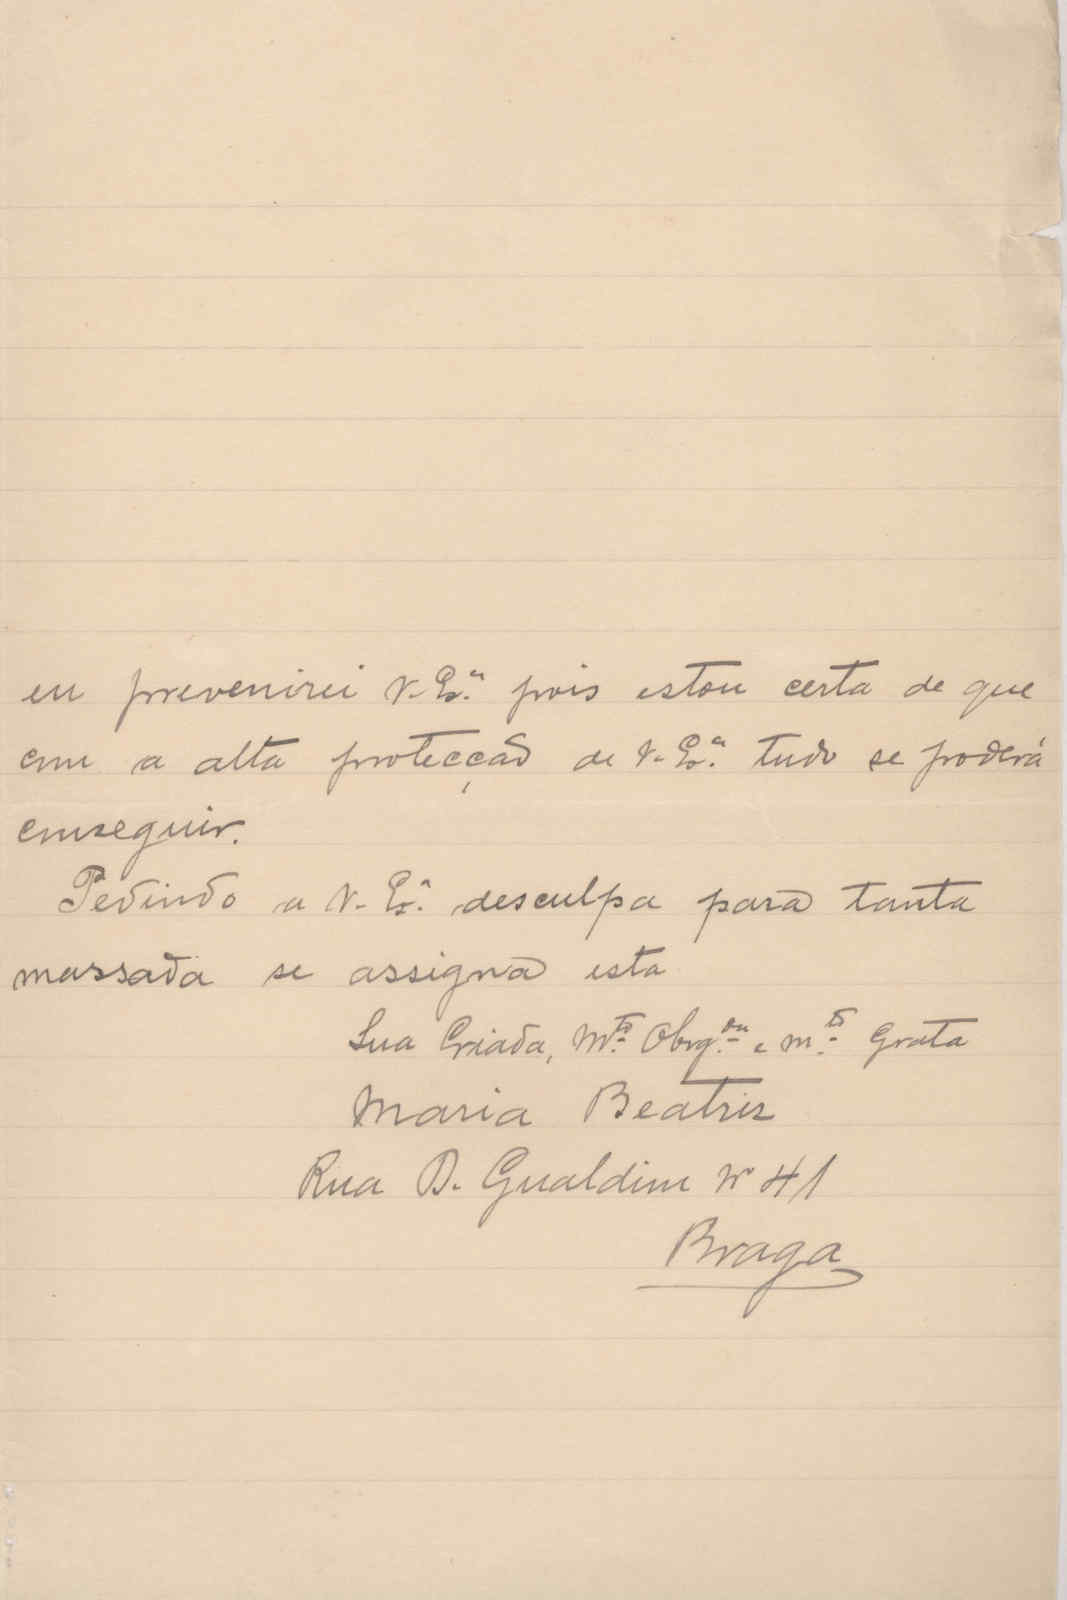 eu prevenirei V. Ex.ª pois estou certa de que
com a alta protecção de V. Ex.ª tudo se poderá
conseguir.
Pedindo a V. Ex.ª desculpa para tanta
massada se assigna esta
Sua Criada, Mto. Obrg.da e m.to Grata
Maria Beatriz
Rua D. Gualdim Nº 41
Braga